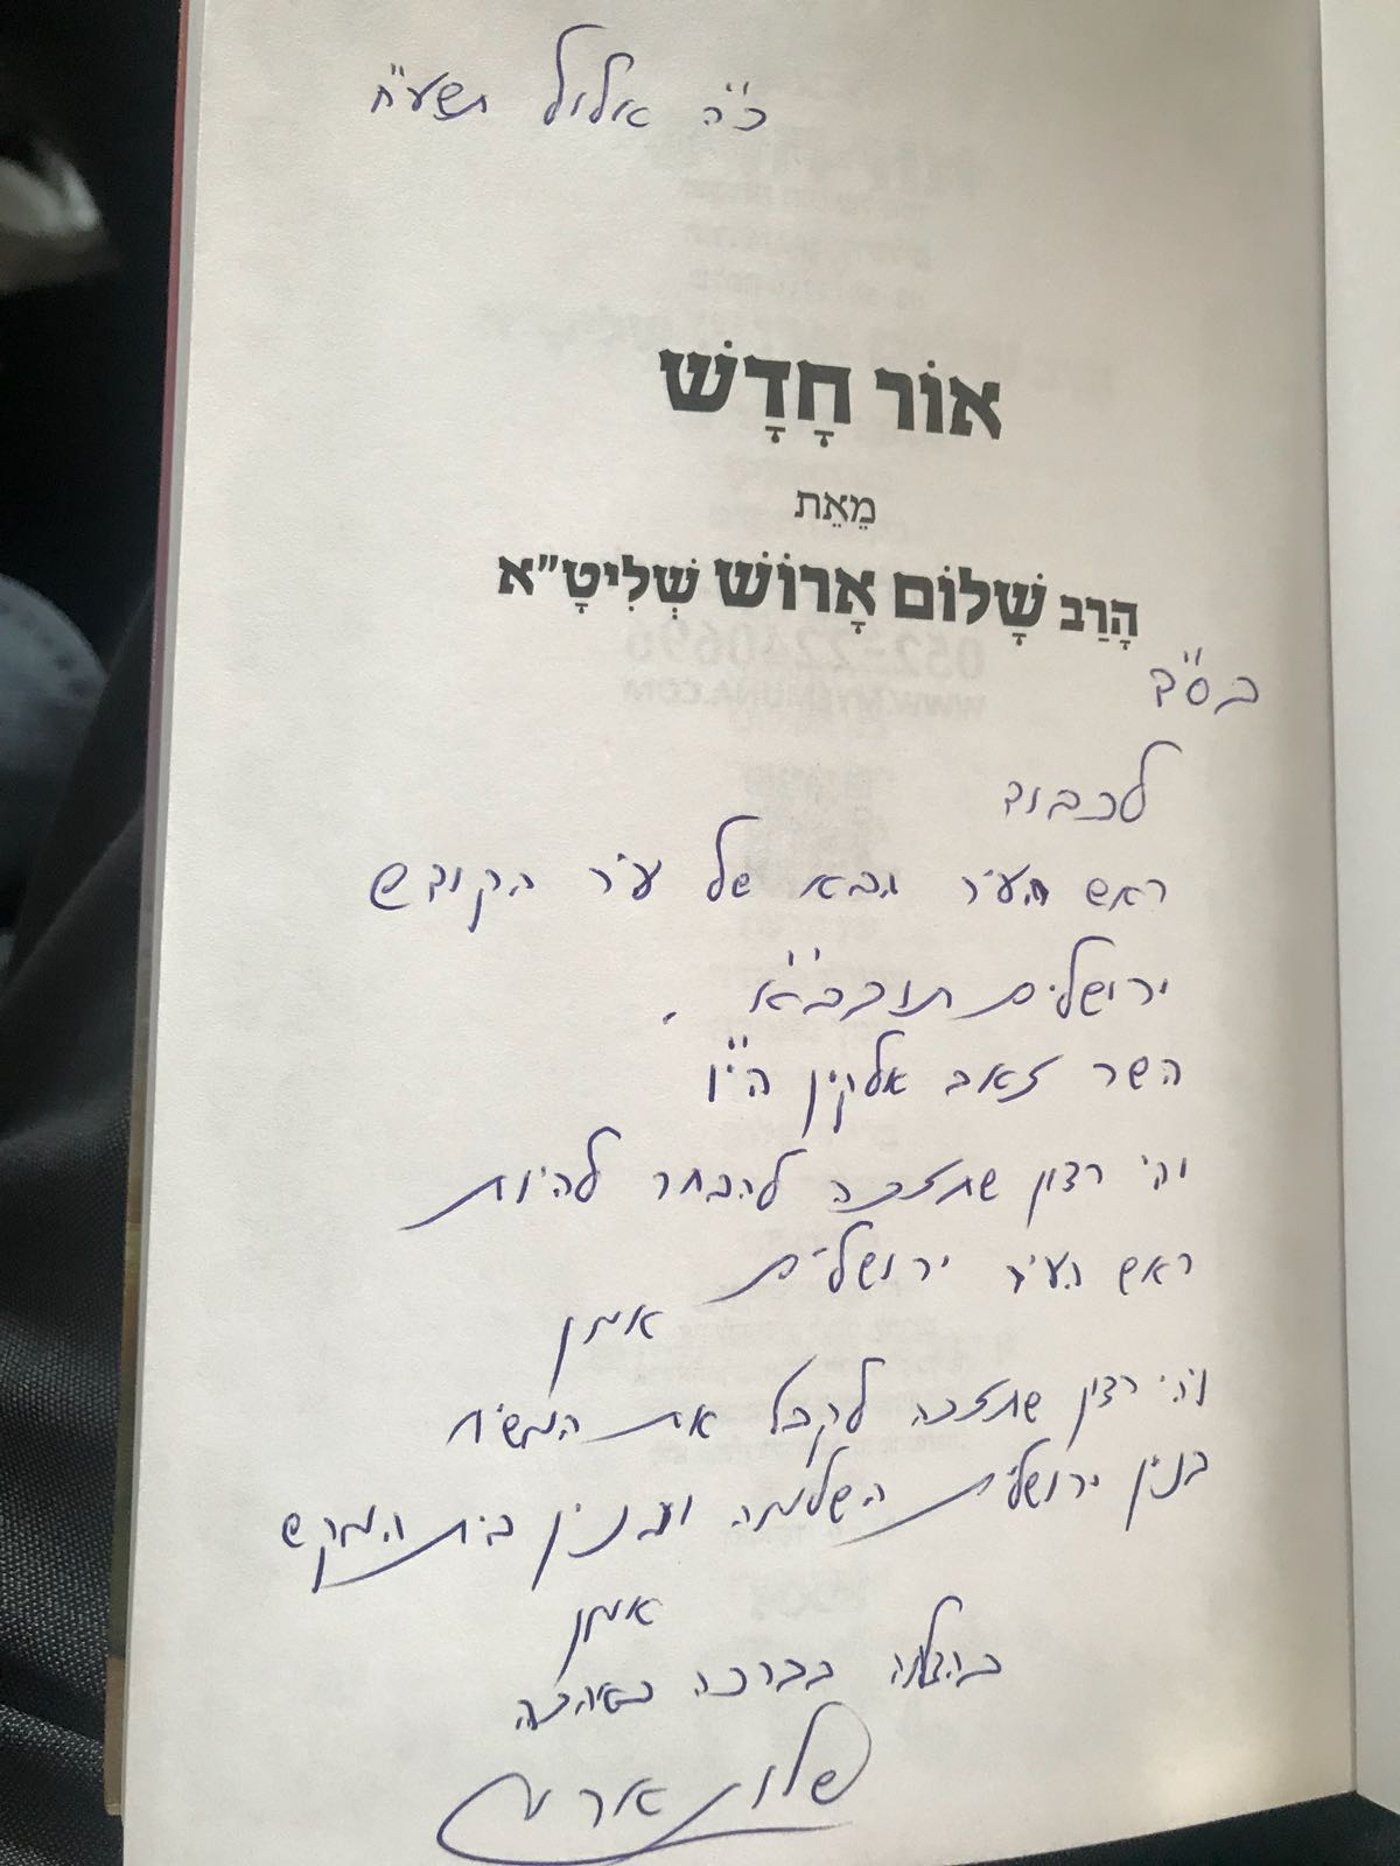 כ"ה אלול תשע"ח
אוֹר חָדָשׁ
מֵאֵת
הָרַב שָׁלוֹם אָרוֹשׁ שְׁלִיטָ"א
בס"ד
לכבוד
ראש העיר הבא של עיר הקודש
ירושלים תובב"א.
השר זאב אלקין הי"ו
ויהי רצון שתזכה להבחר להיות
ראש העיר ירושלים
אמן
ויהי רצון שתזכה לקבל את המשיח
בנין ירושלים השלמה ובנין בית המקדש
אמן
בהצלחה בברכה באהבה
שלום ארוש